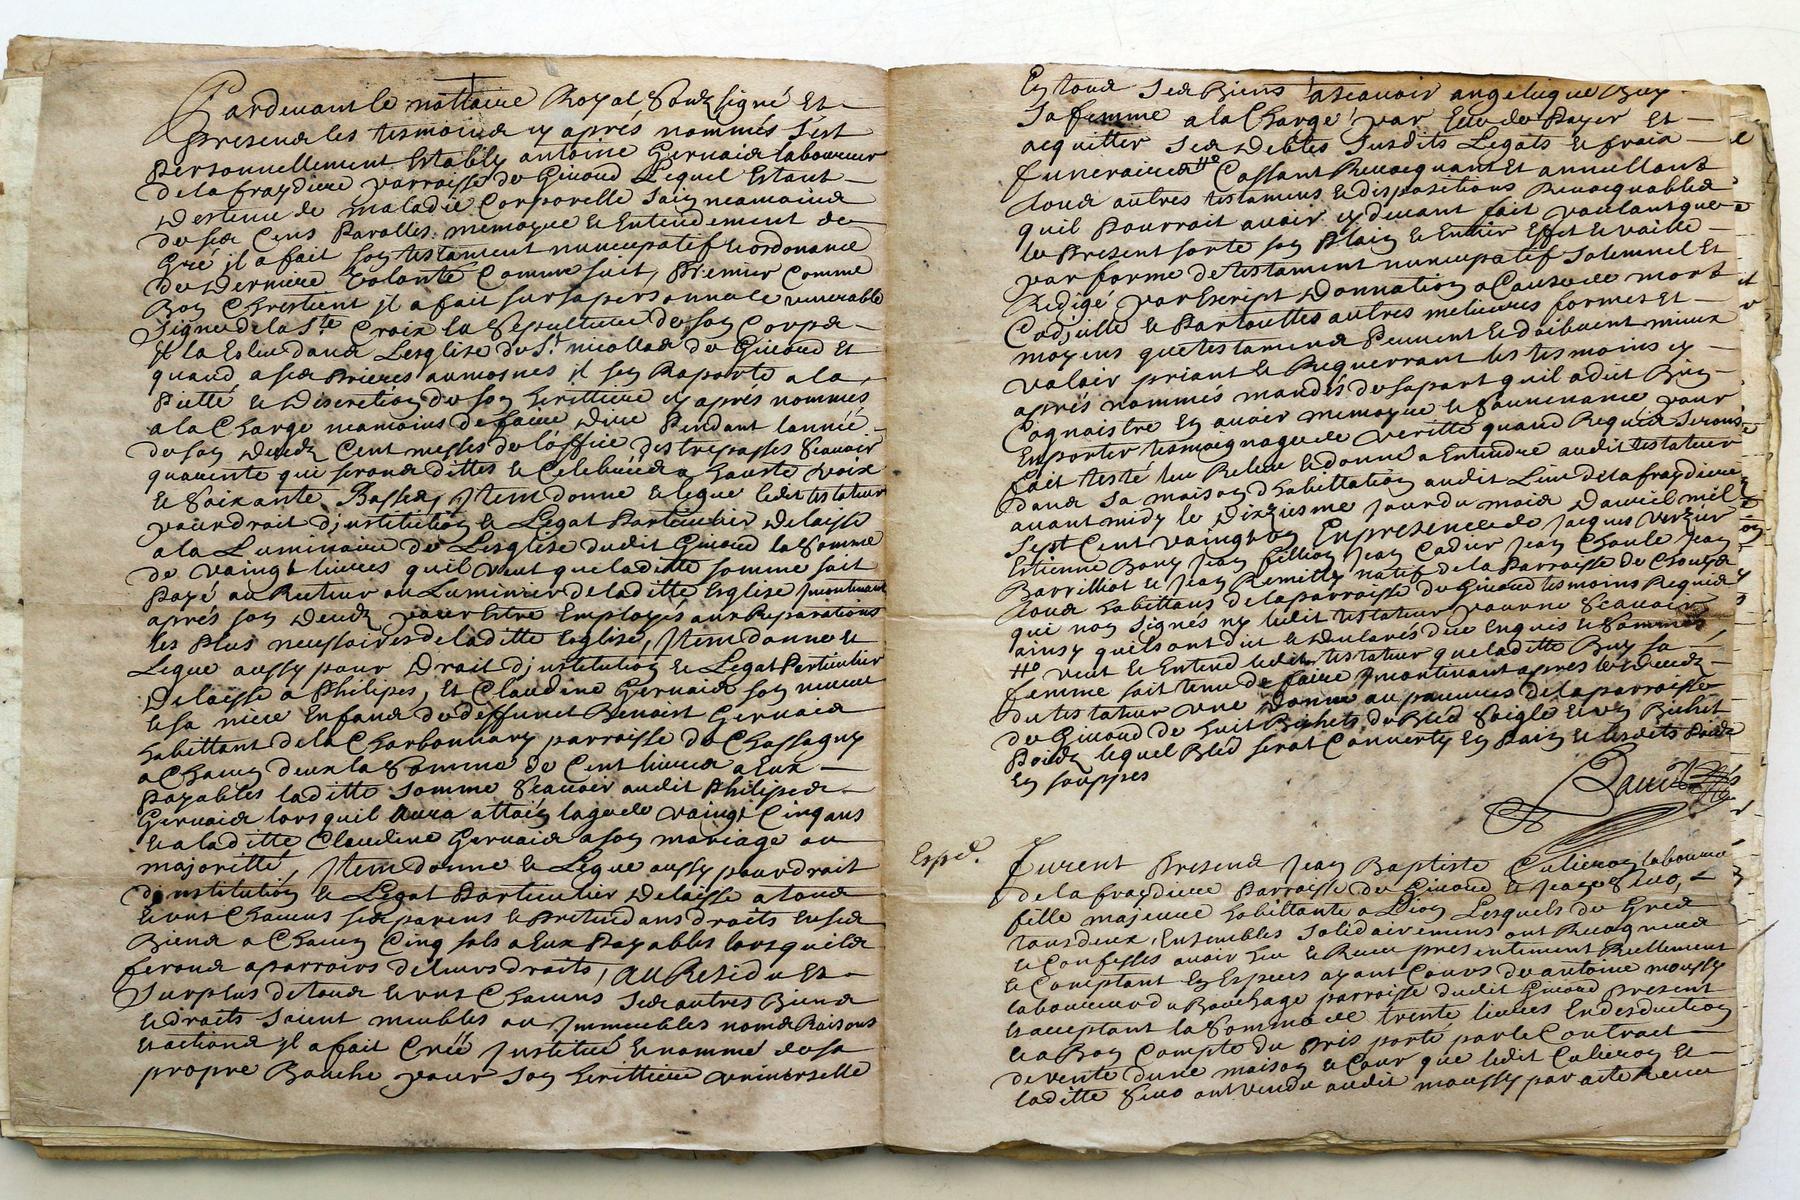 Pardevant le nottaire Royal Soubzsigné Et
presens les tesmoins cy aprés nommés s'est
personnellement Estably antoine Gervais laboureur
de la fraydiere parroisse de Giuoud Lequel Estant
destenu de maladie Corporelle sain neamoins
de ses Cens Parolles memoyre & Entendement de
Gré jl a fait son testament nuncupatif & ordonance
de Derniere Volonté Comme suit, Premier Comme
Bon Chrestient jl a fait sur sa personne le venerable
Signe de la Ste Croix la Sepulture de son Corps
jl la Eslu dans Lesglise de St. nicollas de Giuoud Et
quand a ses Prieres aumosnes il s'en Raporte a la
Pieté & Discretion de son heritiere cy aprés nommés
a la Charge neamoins de faire dire Pendant lannée
de son Deceds Cent messes de l'office des trespassés Scauoir
quarente qui seronds dittes & Celebrées a haute voix
& Soixante Basses, jtem donne & legue ledit testateur
pour droit d'jnstitution & Legat Particulier delaisse
a la Luminaire de Lesglise dudit Giuoud la Somme
de vaingt liures quil veut que laditte somme soit
Payé au Recteur ou Luminier de laditte Esglise jncontinant
aprés son Deceds pour Estre Employés aux Reparations
les Plus necessaires de laditte Esglise, jtem donne &
Legue aussy pour Droit d'jnstitution & Legat Perticulier
Delaisse a Philipes, Et Claudine Gervais son neueu
& sa niece Enfans de deffunct Benoist Gervais
habittant de la Charbonniary parroisse de Chassagny
a Chacun deux la Somme de Cent liures a Eux
Payables laditte somme Scauoir audit Philipes
Gervais lors quil aura attain lage de vaingt Cinq ans
& a laditte Claudine Gervais a son mariage ou
majoritté, jtem donne & Legue aussy pour droit
d'jnstitution & Legat Particulier Delaisse a tous
& uns Chacuns ses parens & Pretendans droits en ses
Biens a Chacun Cinq sols a Eux Payables lors quils
feronds aparroirs de leurs droits, au Residu Et
Surplus de tous & uns Chacuns Ses autres Biens
& droits Soient meubles ou jmmeubles noms Raisons
& actions jl a fait Créé jnstitué & nommé de sa
propre Bouche pour son heritiere vniverselle
En tous Ses Biens ascauoir angelique Buy
Sa femme a la Charge par Elle de Payer Et
acquitter Ses Debtes Susdits Legats & frais
funeraires Cassant Reuocquant Et annullant
tous autres testamens & dispositions Reuocquables
quil Pourrait auoir cy deuant fait voulant que
le Present sorte son Plain & Entier Effet & vaille
par forme de testament nuncupatif Solemnel Et
Redigé par Escript Donnation a Cause de mort
Codjcille & Par touttes autres melieures formes Et
moyens que testamens Peuvent & doibuent mieux
valoir priant & Requerrant les tesmoins cy
aprés nommés mandés de sa part quil a dit Bien
Cognaistre En auoir memoyre & Souuenance pour
En porter tesmoignage de Veritté quand Requis Serons
fait testé leu Releu & donné a Entendre audit testateur
dans sa maison d'habittation audit Lieu de la fraydiere
auant midy le Dixziesme jour du mois Dauril mil
Sept Cent vaingt En presence de Jacques Verzier
Estienne Bony Jean fillion Jean Cadier Jean Choule Jean
Barrilliot & Jean Remilly natif de la Parroisse de
tous habittans de la parroisse de Giuoud tesmoins Requis
qui non signés ny ledit testateur pour ne Scauoir
ainsy quils ont dit & Declarés de ce Enquis & Sommés
veut & Entend ledit testateur que laditte Buy sa
femme soit tenu de faire jncontinant apres le Deceds
du testateur vne Donne au pauures de la parroisse
de Giuoud de huit Bichets de Bled Soigle & vn Bichet
Poidz lequel Bled serat Conuerty En Pain & lesdits Poidz
En souppes
Furent Presens Jean Baptiste Culieron laboureur
de la fraydiere Parroisse de Giuoud &
fille majeure habittante a Lion Lesquels de Grés
tous deux Ensembles Solidairemens ont Recogneus
& Confessés auoir Eu & Receu presentement Reellement
& Comptant En Especes ayant Cours de antoine moussy
laboureur du Bouchage parroisse dudit Giuoud present
& acceptant la Somme de trente liures En desduction
& a Bon Compte du Pris porté par le Contract
de vente dune maison & Cour que ledit Culieron Et
laditte ont vendu audit moussy par acte Receu